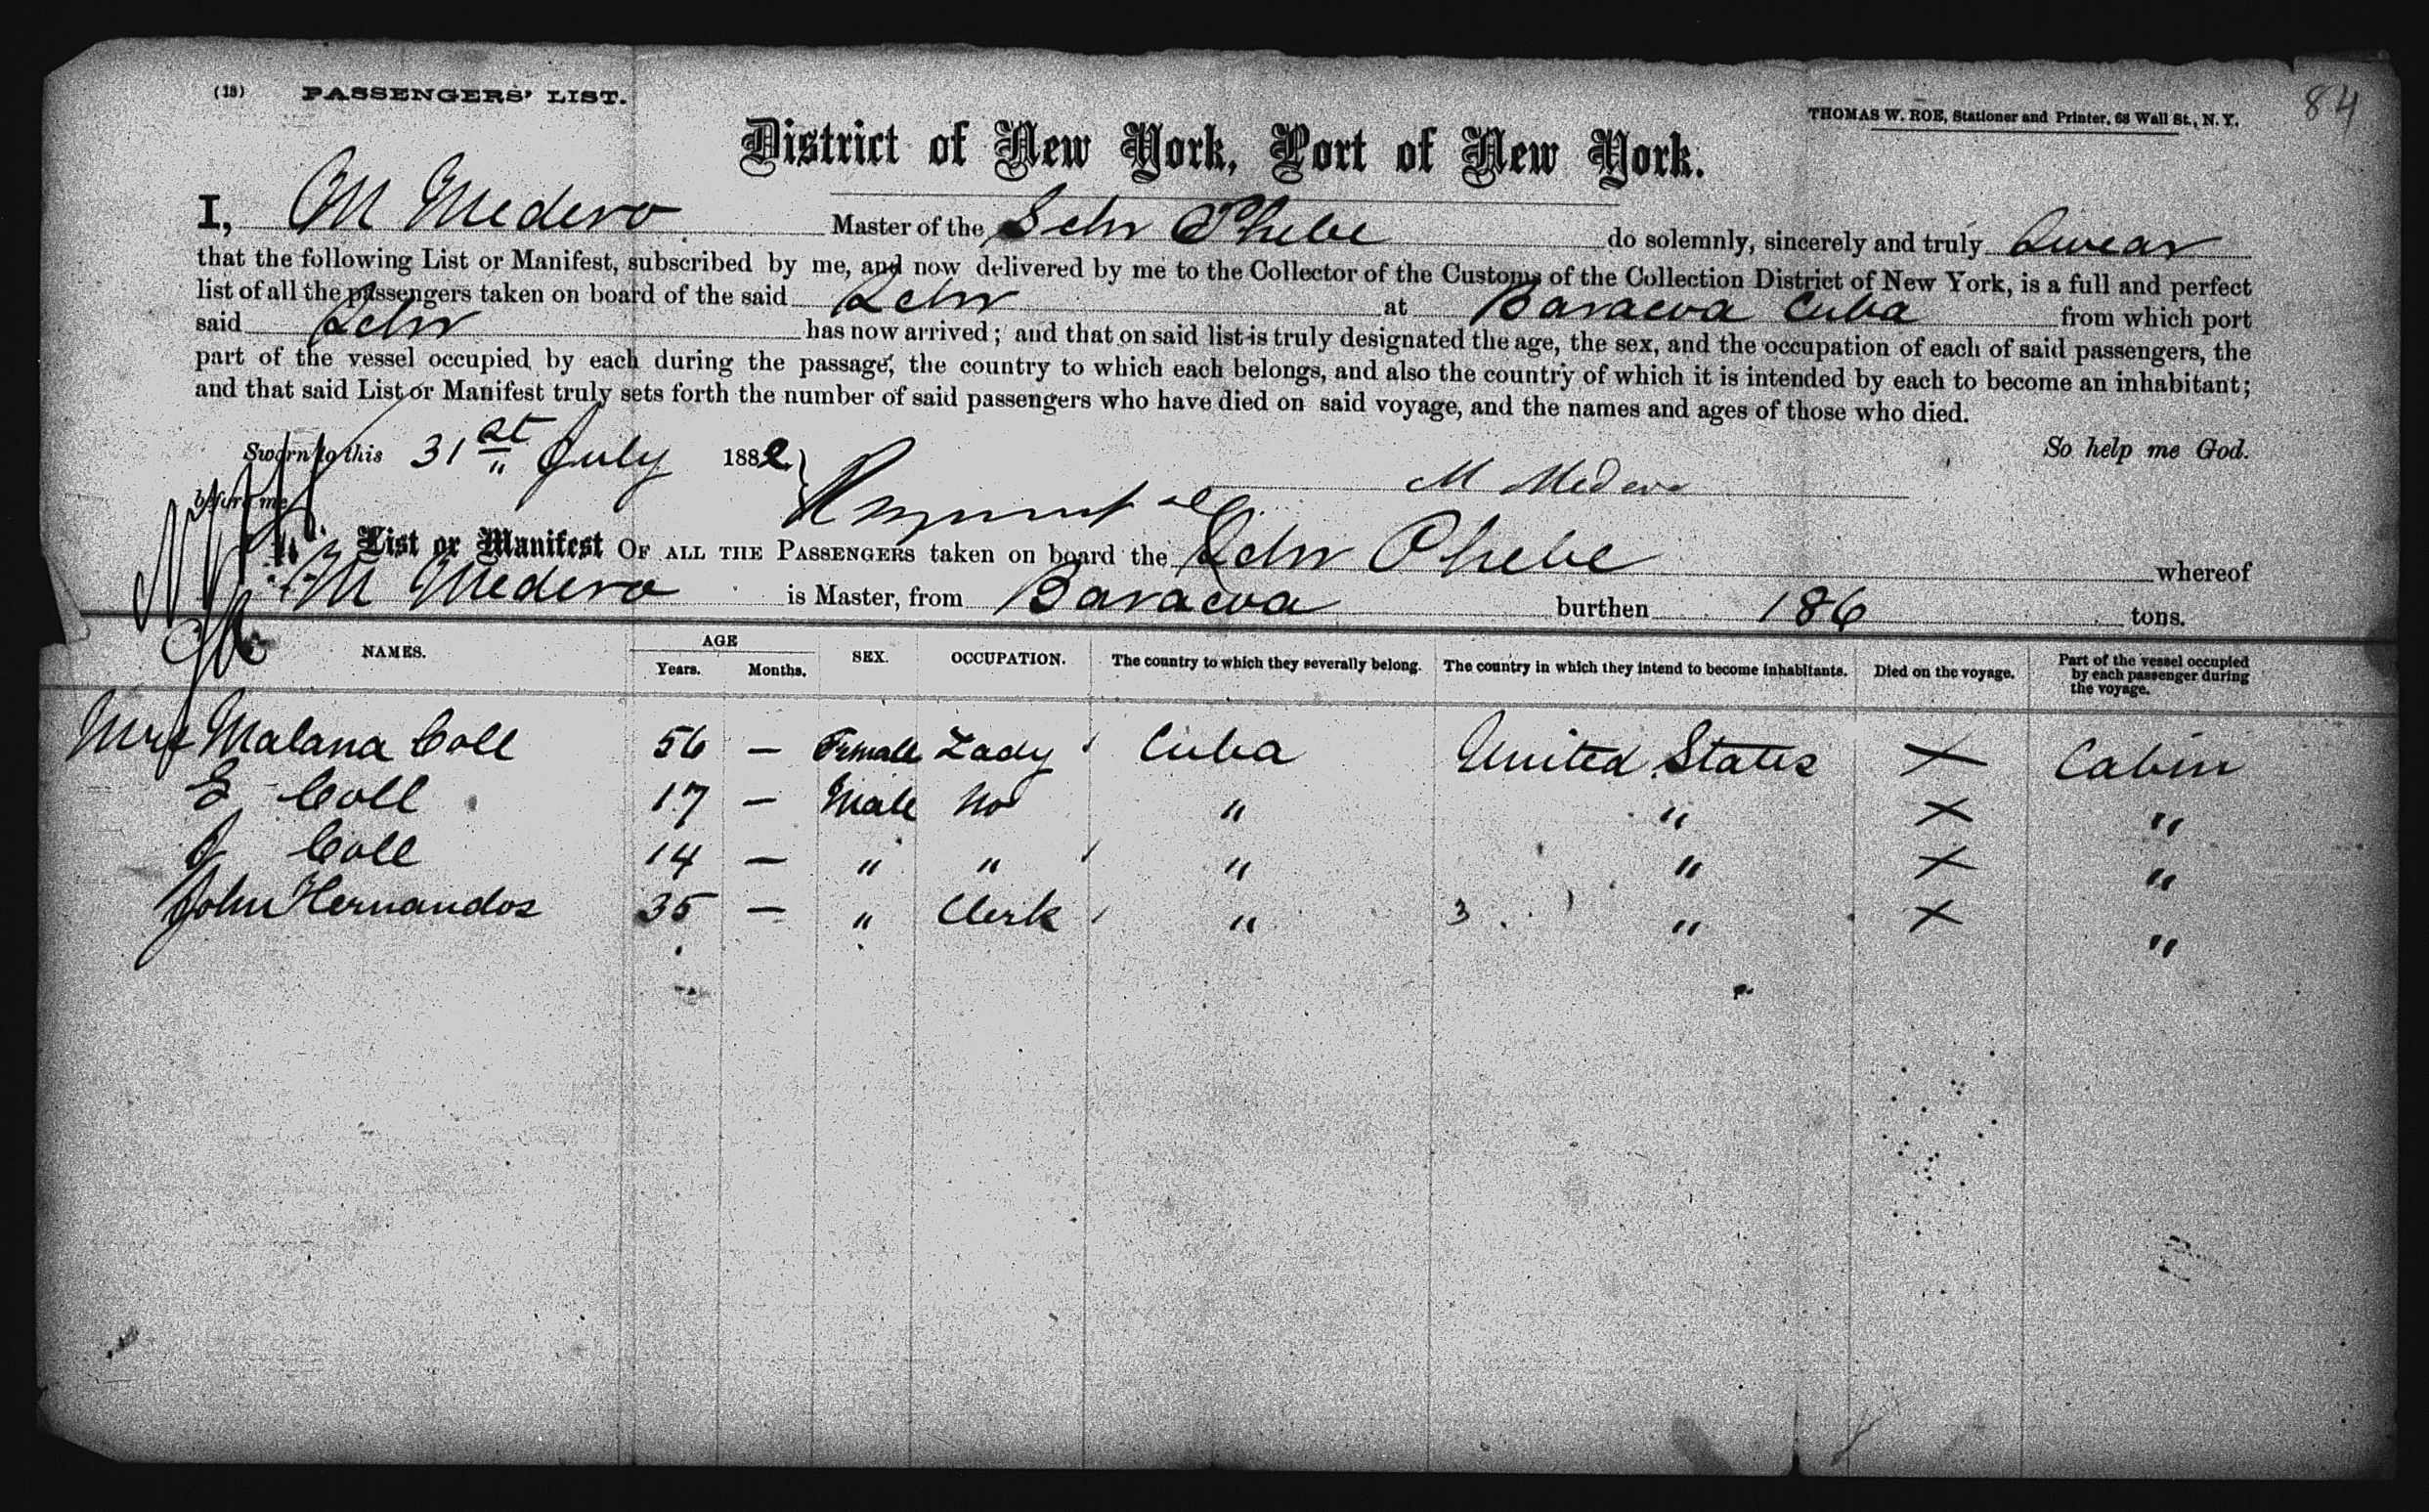 (18) PASSENGERS' LIST.
THOMAS W. ROE, Stationer and Printer, 68 Wall St., N. Y.
84
District of New York, Port of New York.
I, M Medero Master of the Schr Phebe do solemnly, sincerely and truly Swear
that the following List or Manifest, subscribed by me, and now delivered by me to the Collector of the Customs of the Collection District of New York, is a full and perfect
list of all the passengers taken on board of the said Schr at Baracoa Cuba from which port
said Schr has now arrived; and that on said list is truly designated the age, the sex, and the occupation of each of said passengers, the
part of the vessel occupied by each during the passage, the country to which each belongs, and also the country of which it is intended by each to become an inhabitant;
and that said List or Manifest truly sets forth the number of said passengers who have died on said voyage, and the names and ages of those who died.
Sworn to this 31st July 1882
So help me God.
before me
M Medero
List or Manifest OF ALL THE PASSENGERS taken on board the Schr Phebe whereof
M Medero is Master, from Baracoa burthen 186 tons.
NAMES. AGE Years. Months. SEX. OCCUPATION. The country to which they severally belong. The country in which they intend to become inhabitants. Died on the voyage. Part of the vessel occupied by each passenger during the voyage.
Mrs Malana Coll 56 — Female Lady Cuba United States X Cabin
E Coll 17 — Male No " " X "
J Coll 14 — " " " " X "
John Hernandos 35 — " Clerk " " X "